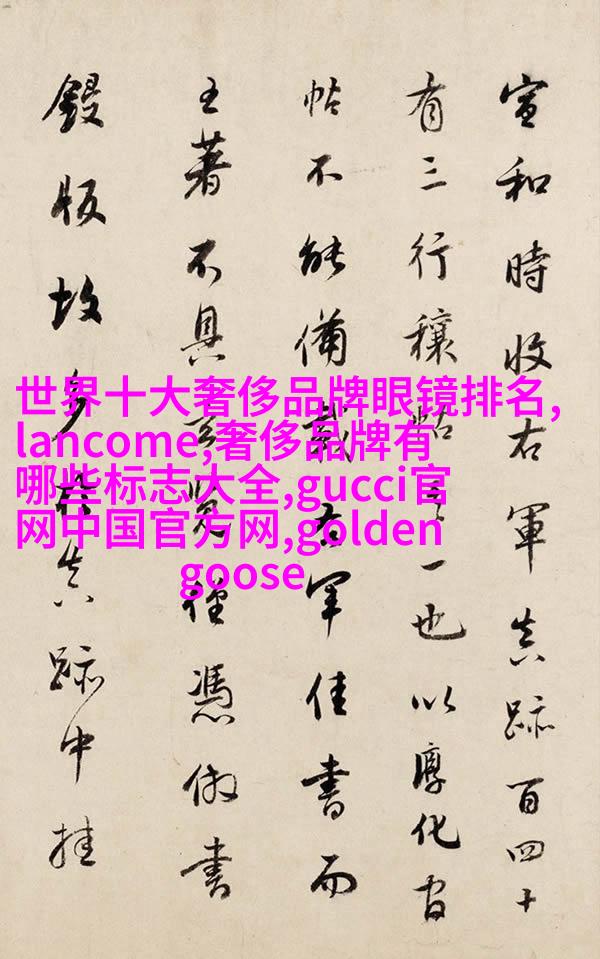 世界十大奢侈品牌眼镜排名,
lancome,奢侈品牌有
哪些标志大全,gucci官
网中国官方网,golden
goose
宣和時收右軍真跡百四十
有三行穰帖一也以淳化官
帖不能備載右軍佳書而
王著不具玄覽徑憑倣書
鋟版故多於真跡中挂